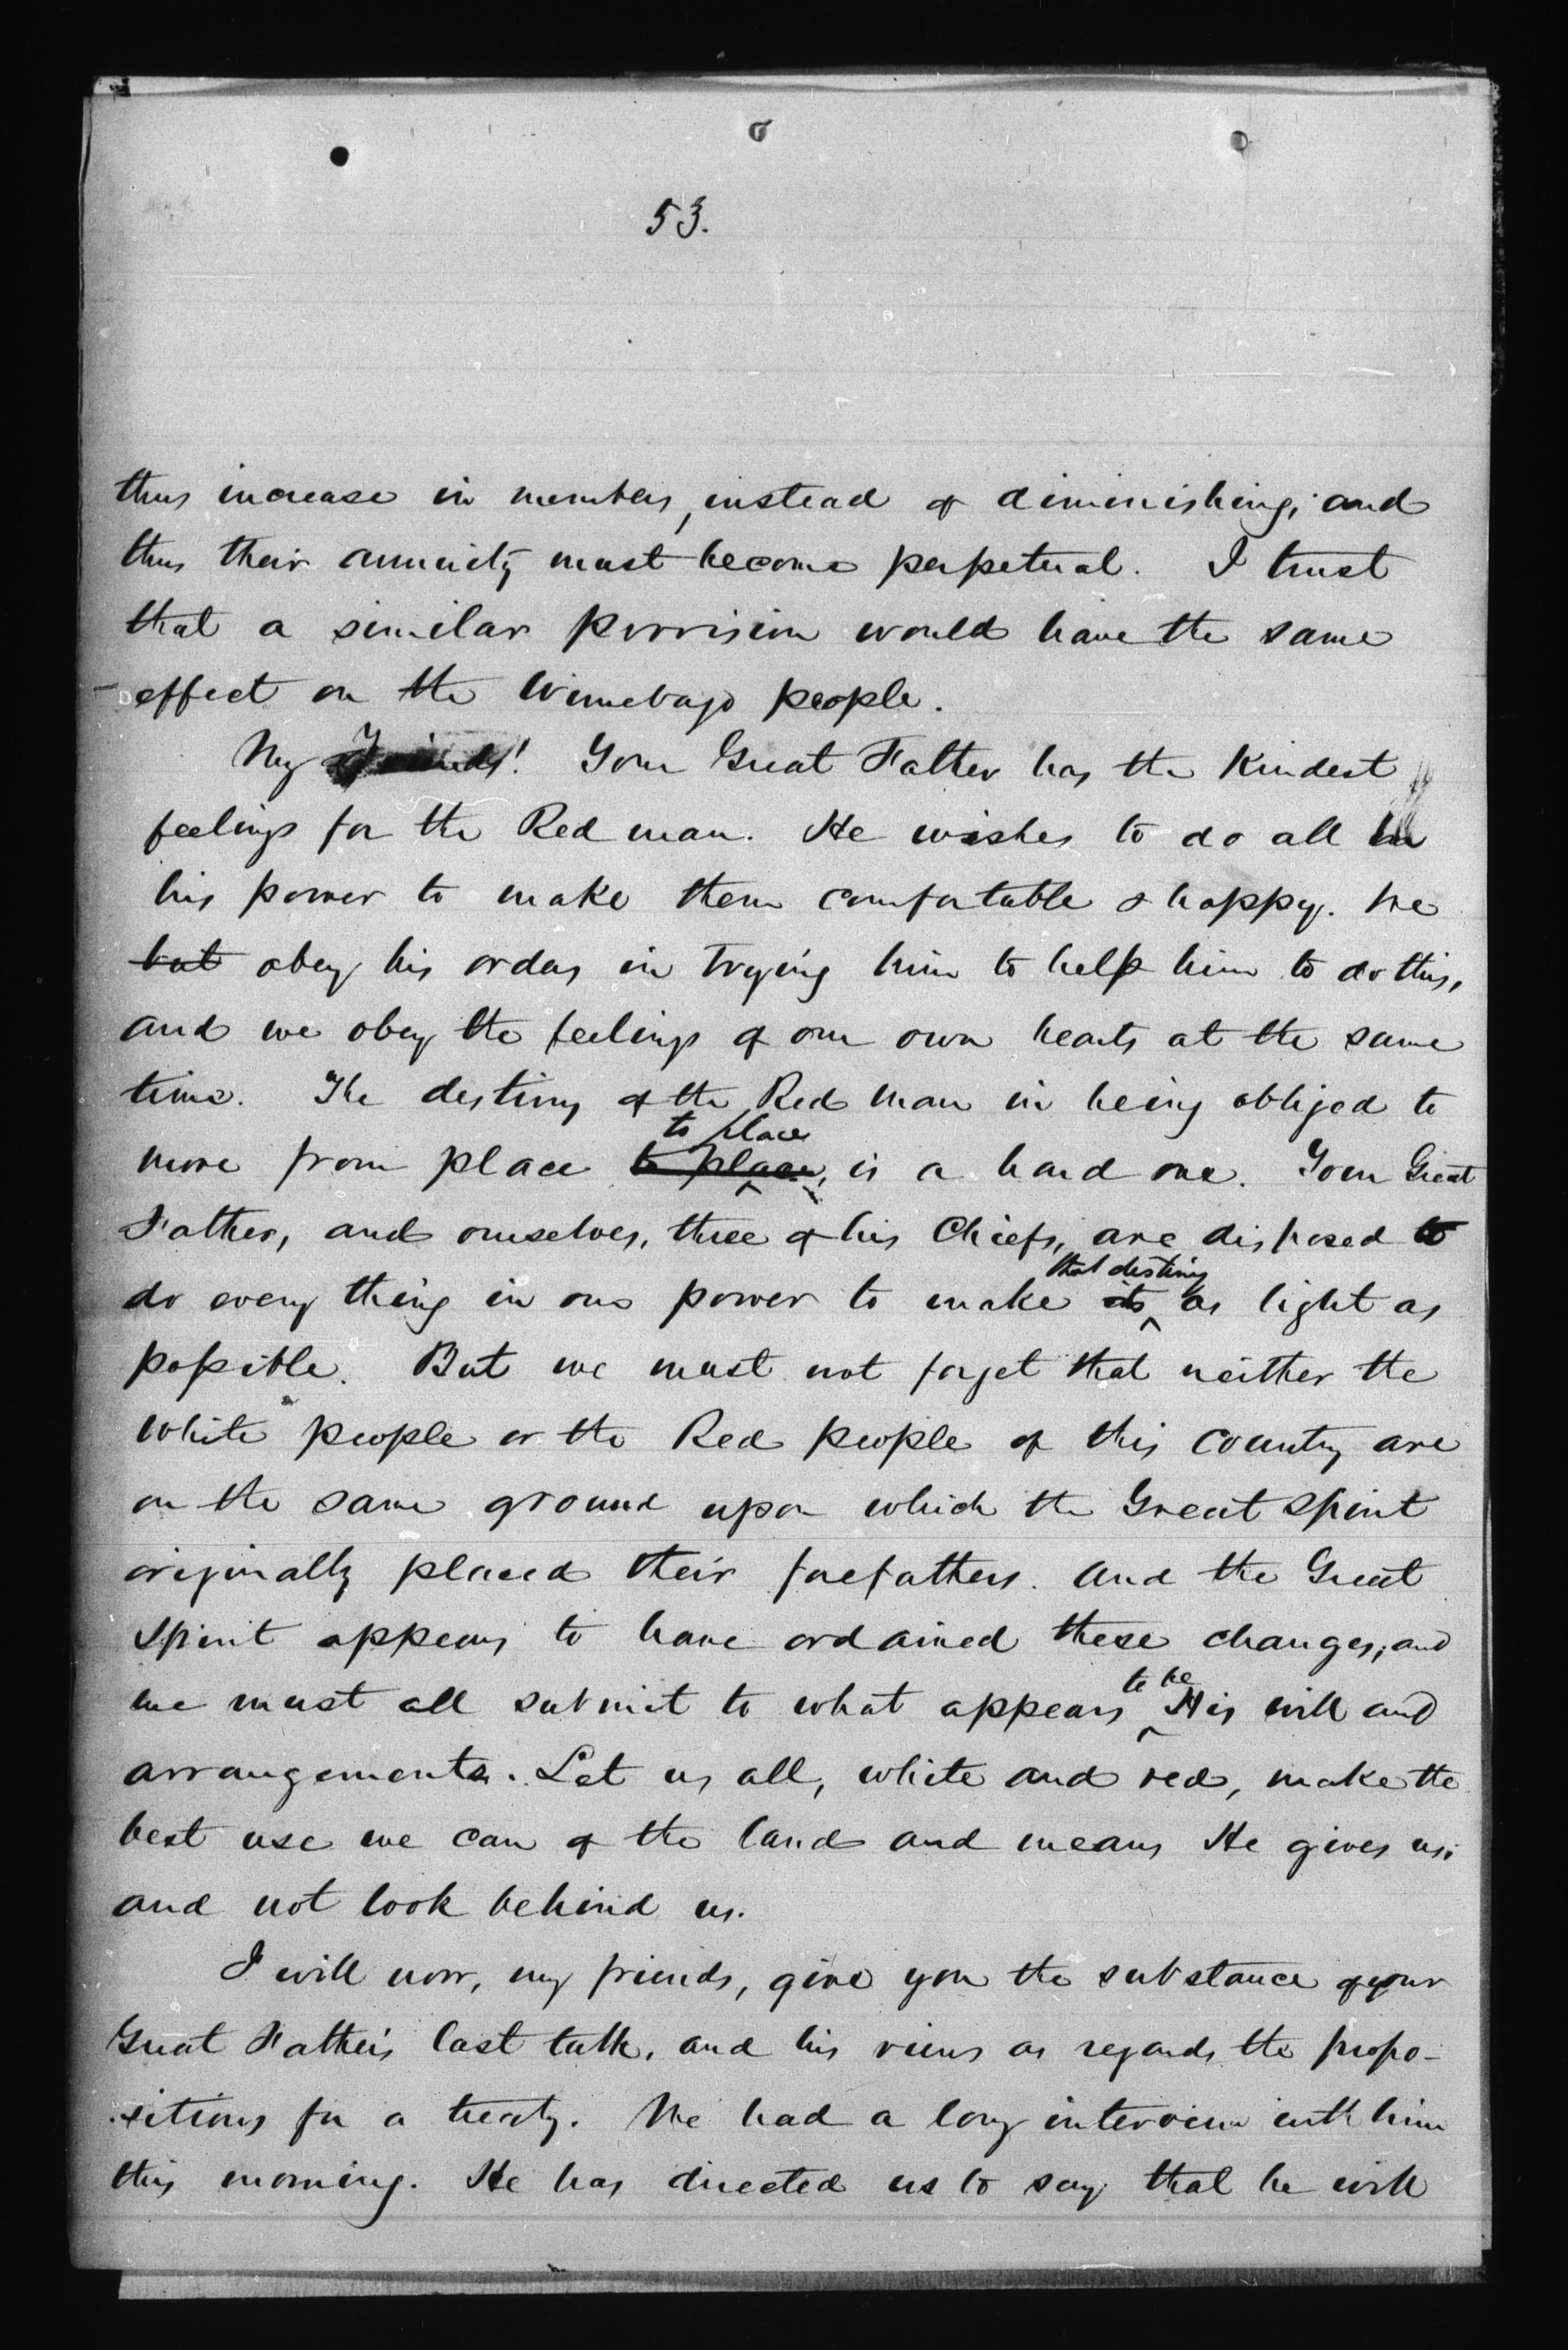 53.
thus increase in numbers, instead of diminishing; and
thus their annuity must become perpetual. I trust
that a similar provision would have the same
effect on the Winnebago people.
My Friends! Your Great Father has the kindest
feelings for the Red man. He wishes to do all in
his power to make them comfortable & happy. We
but obey his orders in trying him to help him to do this,
and we obey the feelings of our own hearts at the same
time. The destiny of the Red man in being obliged to
to place
move from place to place, is a hard one. Your Great
Father, and ourselves, three of his Chiefs, are disposed to
that destiny
do every thing in our power to make its as light as
possible. But we must not forget that neither the
white people or the Red people of this country are
on the same ground upon which the Great Spirit
originally placed their forefathers. And the Great
Spirit appears to have ordained these changes; and
to be
we must all submit to what appears His will and
arrangements. Let us all, white and red, make the
best use we can of the land and means He gives us;
and not look behind us.
I will now, my friends, give you the substance of your
Great Father's last talk, and his views as regards the propo-
sitions for a treaty. We had a long interview with him
this morning. He has directed us to say that he will